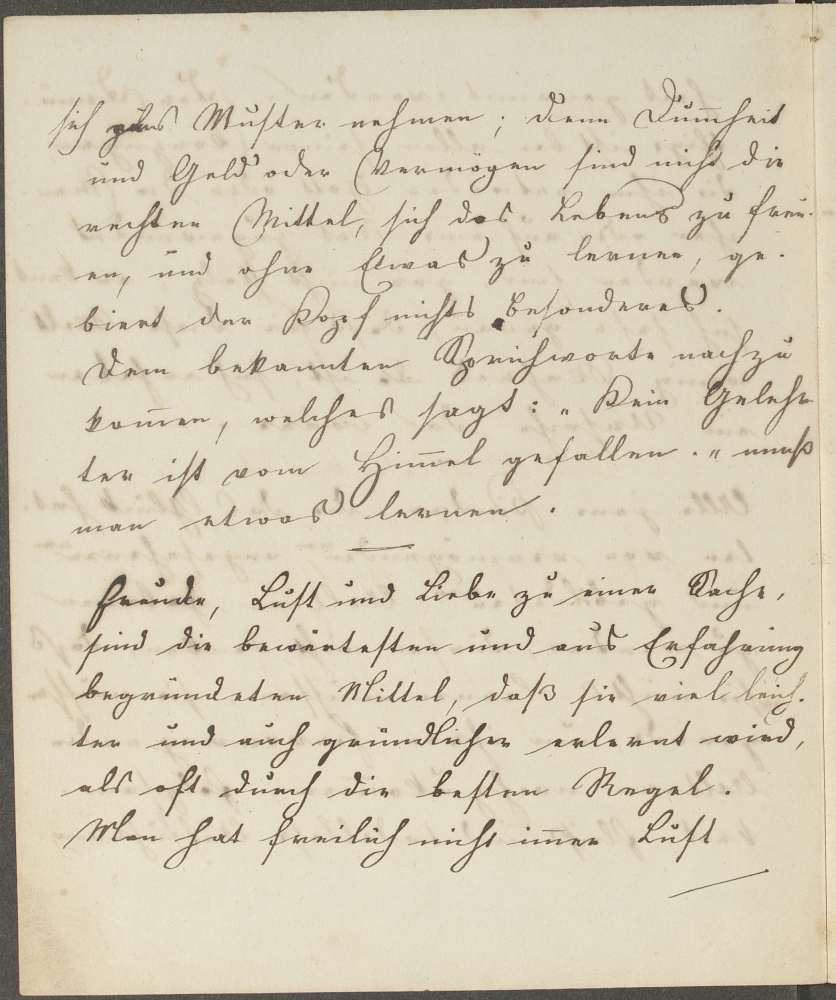 sich zum Muster nehmen; denn Dum̅heit
und Geld oder Vermögen sind nicht die
rechten Mittel, sich des Lebens zu freu-
en, und ohne Etwas zu lernen, ge-
biert der Kopf nichts besonderes.
Dem bekannten Sprichworte nachzu
kom̅en, welches sagt: „Kein Gelehr
ter ist vom Him̅el gefallen." muß
man etwas lernen.
Freude, Lust und Liebe zu einer Sache,
sind die bewärtesten und aus Erfahrung
begründeten Mittel, daß sie viel leich-
ter und auch gründlicher erlernt wird,
als oft durch die besten Regel.
Man hat freilich nicht im̅er Lust